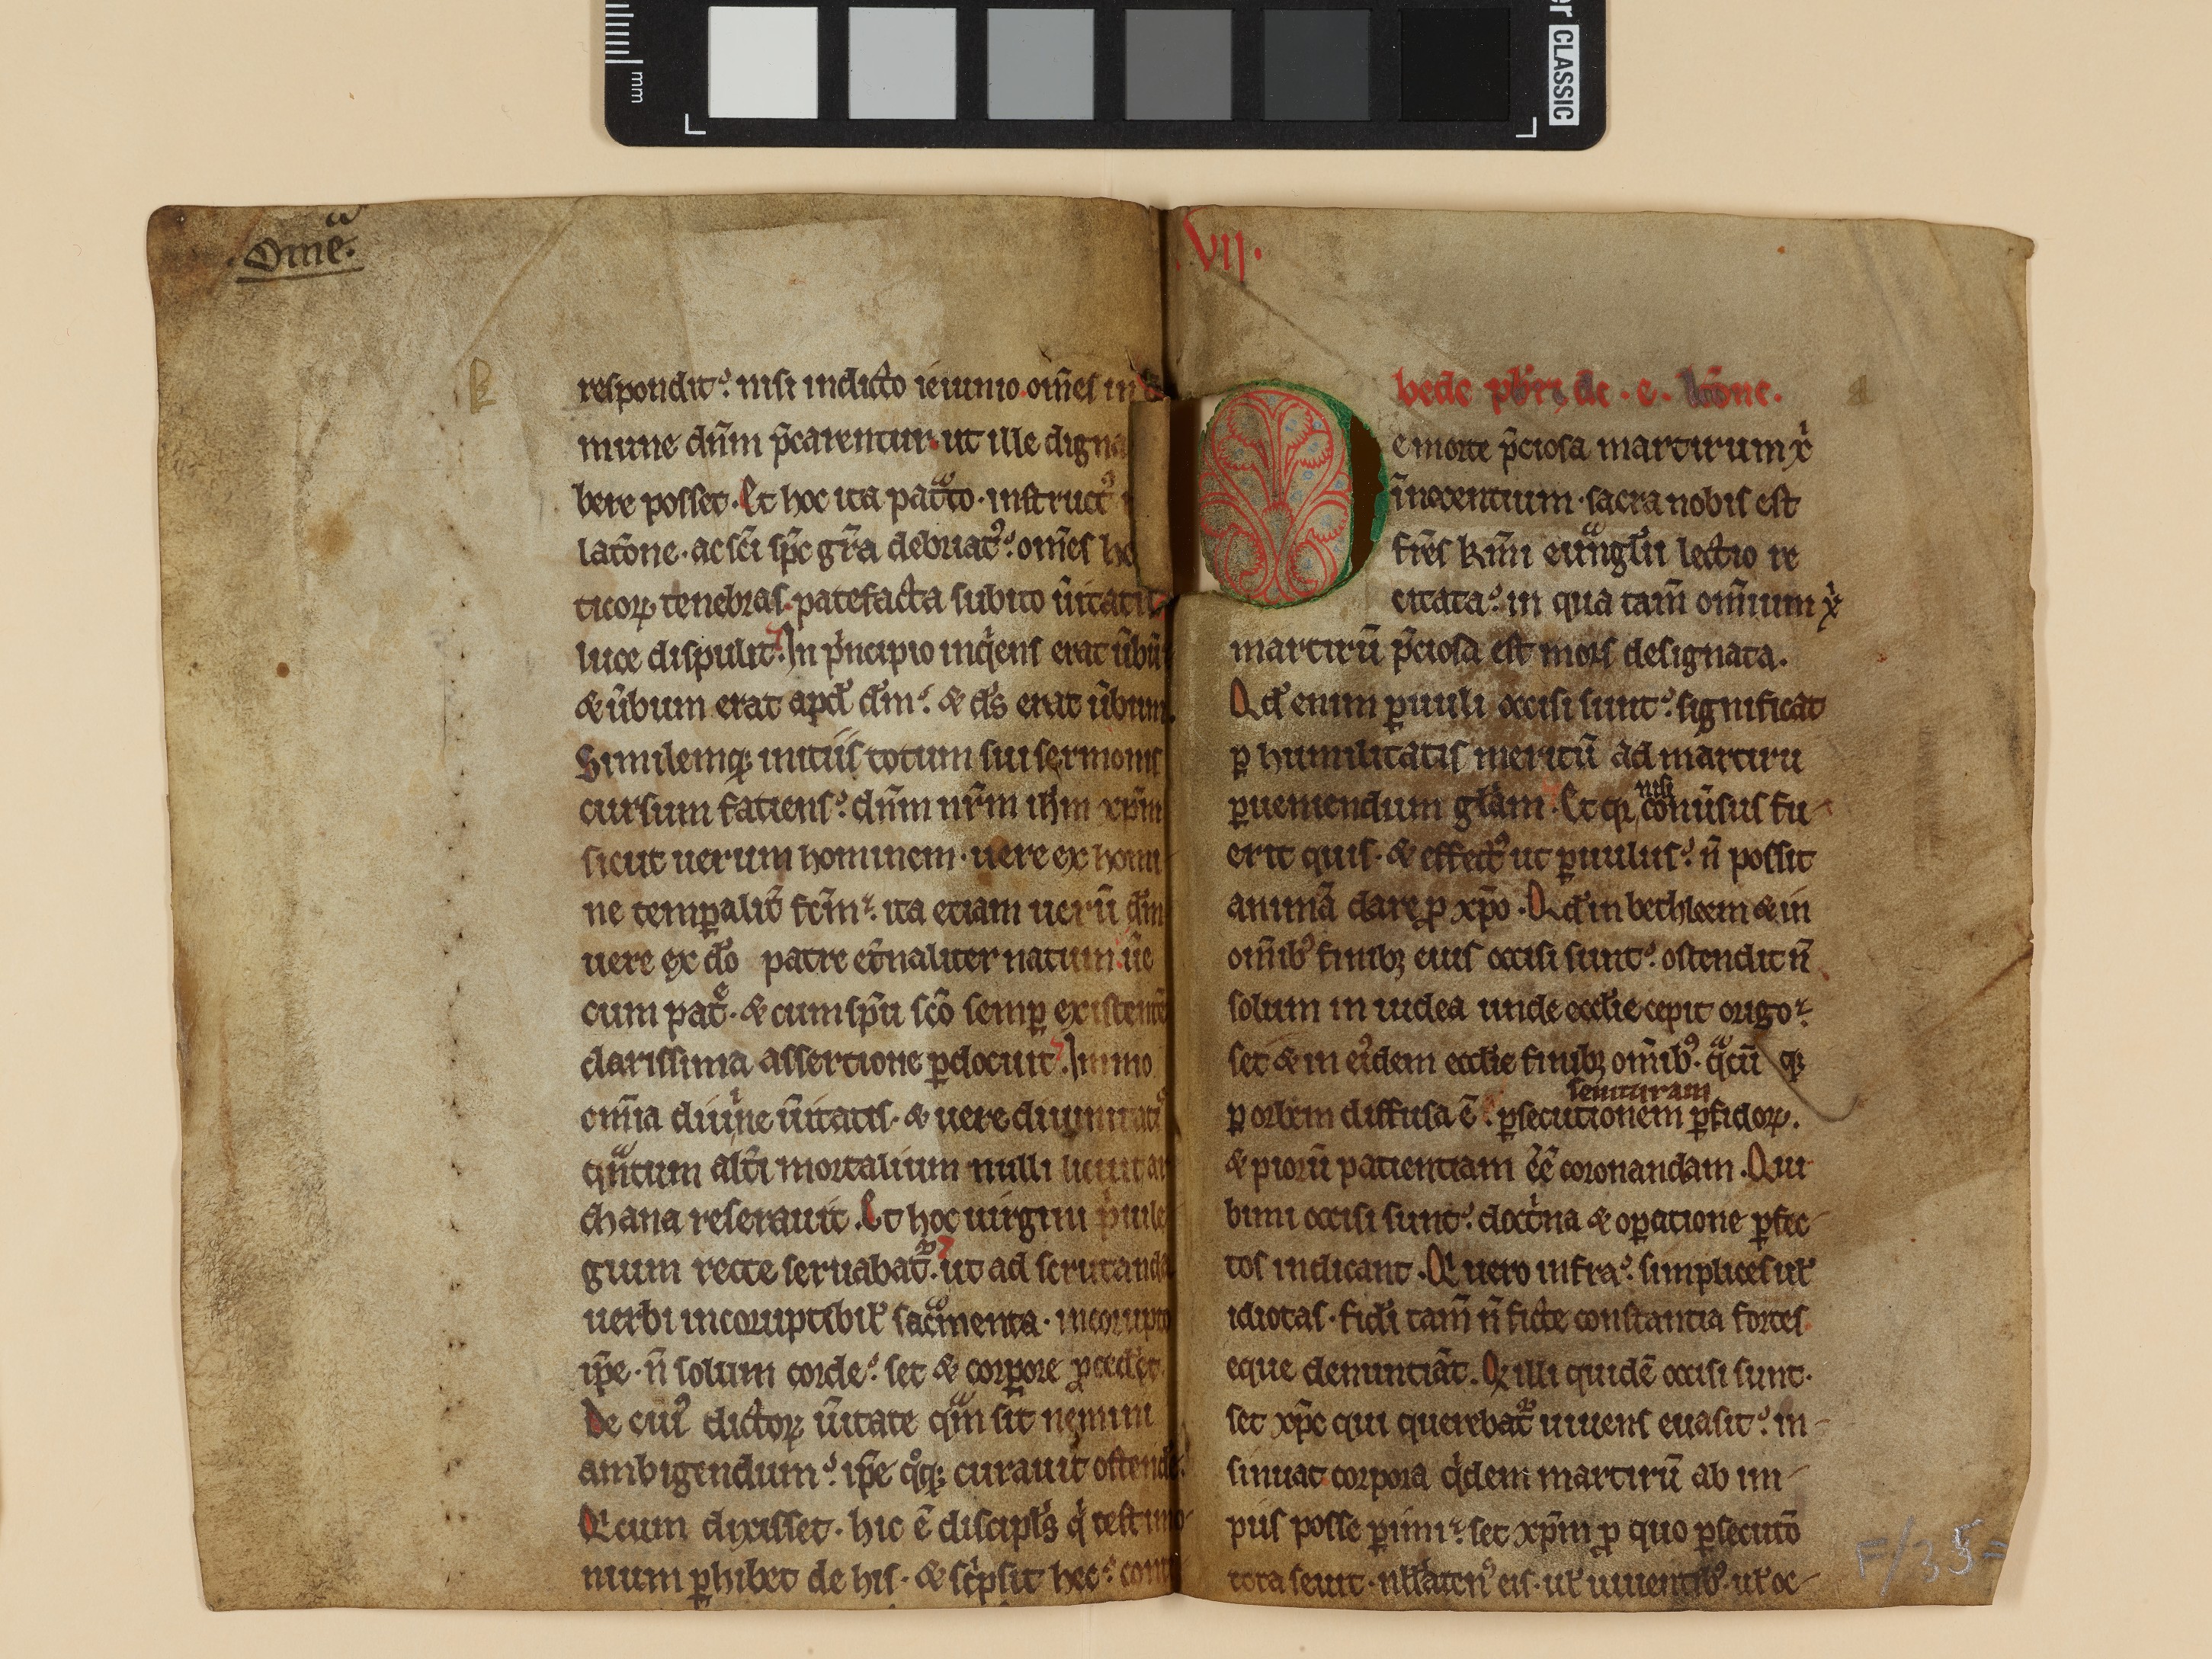 mm
er CLASSIC
Om̄e.
respondit: nisi indicto ieiunio. om̄es in
mune dn̄m p̄carentur. ut ille digna
bere posset. Et hoc ita patͣto. instructꝰ
latōne. ac sc̄i sp̄c gr̄a debriatꝰ: om̄es he
ticoꝝ tenebras. patefacta subito ūitatis
luce dispulit. In pͥncipio inqͥens erat ūbū
& ūbum erat apd̄ dm̄: & ds̄ erat ūbum.
Similemqꝫ initiis totum sui sermonis
cursum fatiens: dn̄m nr̄m ih̄m xp̄m
sicut uerum hominem. uere ex homi-
ne temꝑalit̄ fc̄m: ita etiam uerū dm̄
uere ex do̅ patre et̄naliter natum. ūe
cum patͤ. & cum sp̄u sc̄o semꝑ existentē
clarissima assertione ꝑdocuit. Immo
om̄ia diuine ūitatis. & uere diuinitatꝰ
qn̄ͣtum alt̄i mortalium nulli licuit ar
chana reserauit. Et hoc uirgini pͥuile
gium recte seruabat᷑. ut ad scrutanda
uerbi incoruptibil̄ sacͣmenta. incorupto
ip̄e. n̄ solum corde: set & corpore ꝓcedet.
De cuiꝰ dictoꝝ ūitate qͣm sit nemini
ambigendum: ip̄e qͦqꝫ curauit ostende
Qꝛ cum dixisset. hic ē discipls̄ qͥ testimo-
nium ꝑhibet de his. & scͥpsit hec:
VII.
bede pb̄ri de. e. lc̄one.
e morte p̄ciosa martirum xͥ
īnocentium. sacra nobis est
frēs km̄i euͣngl̄ii lectio re
citata: in qua tam̄ om̄ium xͥ
martirū p̄ciosa est mors designata.
Qd̄ enim ꝑuuli occisi sunt: significat
ꝑ humilitatis meritū ad martiru
ꝑueniendum gl̄am. Et qꝛ nisi conūsus fu-
erit quis. & effectꝰ ut ꝑuulus: n̄ possit
animā dare ꝓ xp̄o. Qd̄ in bethleem & in
om̄ibꝰ finibꝫ eius occisi sunt: ostendit n̄
solum in iudea unde eccl̄ie cepit origo:
set & in eiꝰdem eccl̄ie finibꝫ om̄ibꝰ. qͣcū qꝫ
ꝑ orbem diffusa ē: seuituram ꝑsecutionem ꝑfidoꝝ.
& piorū patientiam ēē coronandam. Qui
bimi occisi sunt: doctͥna & oꝑatione ꝑfec-
tos indicant. Qͥ uero infra: simplices ul̄
idiotas. fidei tam̄ n̄ ficte constantia fortes
eque denuntiāt. Qꝛ illi quidē occisi sunt.
set xp̄c qui querebat᷑ uiuens euasit: in-
sinuat corpora qͥdem martirū ab im-
piis posse ꝑimi: set xp̄m ꝓ quo ꝑsecutō
tota seuit. nll̄atenꝰ eis. ul̄ uiuentibꝰ. ul̄ oc-
F/35=